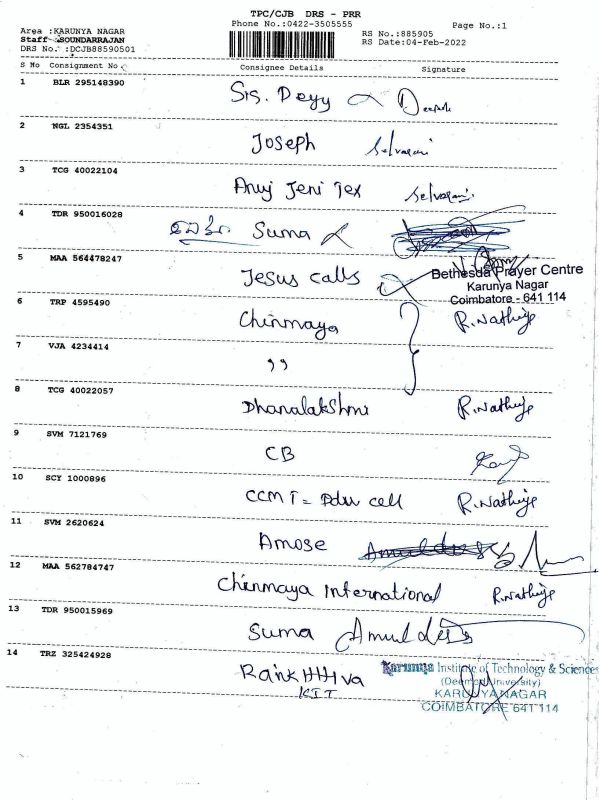 TPC/CJB DRS - PRR
Phone No.:0422-3505555
Page No.:1
Area :KARUNYA NAGAR
Staff :SOUNDARRAJAN
DRS No. :DCJB88590501
RS No.:885905
RS Date:04-Feb-2022
S No Consignment No Consignee Details Signature
1 BLR 295148390 Sis. Deyy
2 NGL 2354351 Joseph Selvarani
3 TCG 40022104 Anuj Jeni Jex Selvarani
4 TDR 950016028 Suma
5 MAA 564478247 Jesus calls
Bethesda Prayer Centre
Karunya Nagar
Coimbatore - 641 114
6 TRP 4595490 Chinmaya R.Nathiya
7 VJA 4234414 ,,
8 TCG 40022057 Dhanalakshmi R.Nathiya
9 SVM 7121769 CB
10 SCY 1000896 CCMT = cell R.Nathiya
11 SVM 2620624 Amose
12 MAA 562784747 Chinmaya International R.Nathiya
13 TDR 950015969 Suma
14 TRZ 325424928
KIT
Karunya Institute of Technology & Sciences
(Deemed University)
KARUNYA NAGAR
COIMBATORE 641 114